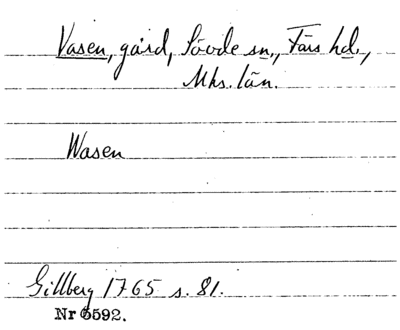 Vasen, gård, Sövde sn., Färs hd.,
Mhs. län.
Wasen
Gillberg 1765 s. 81.
Nr 6592.